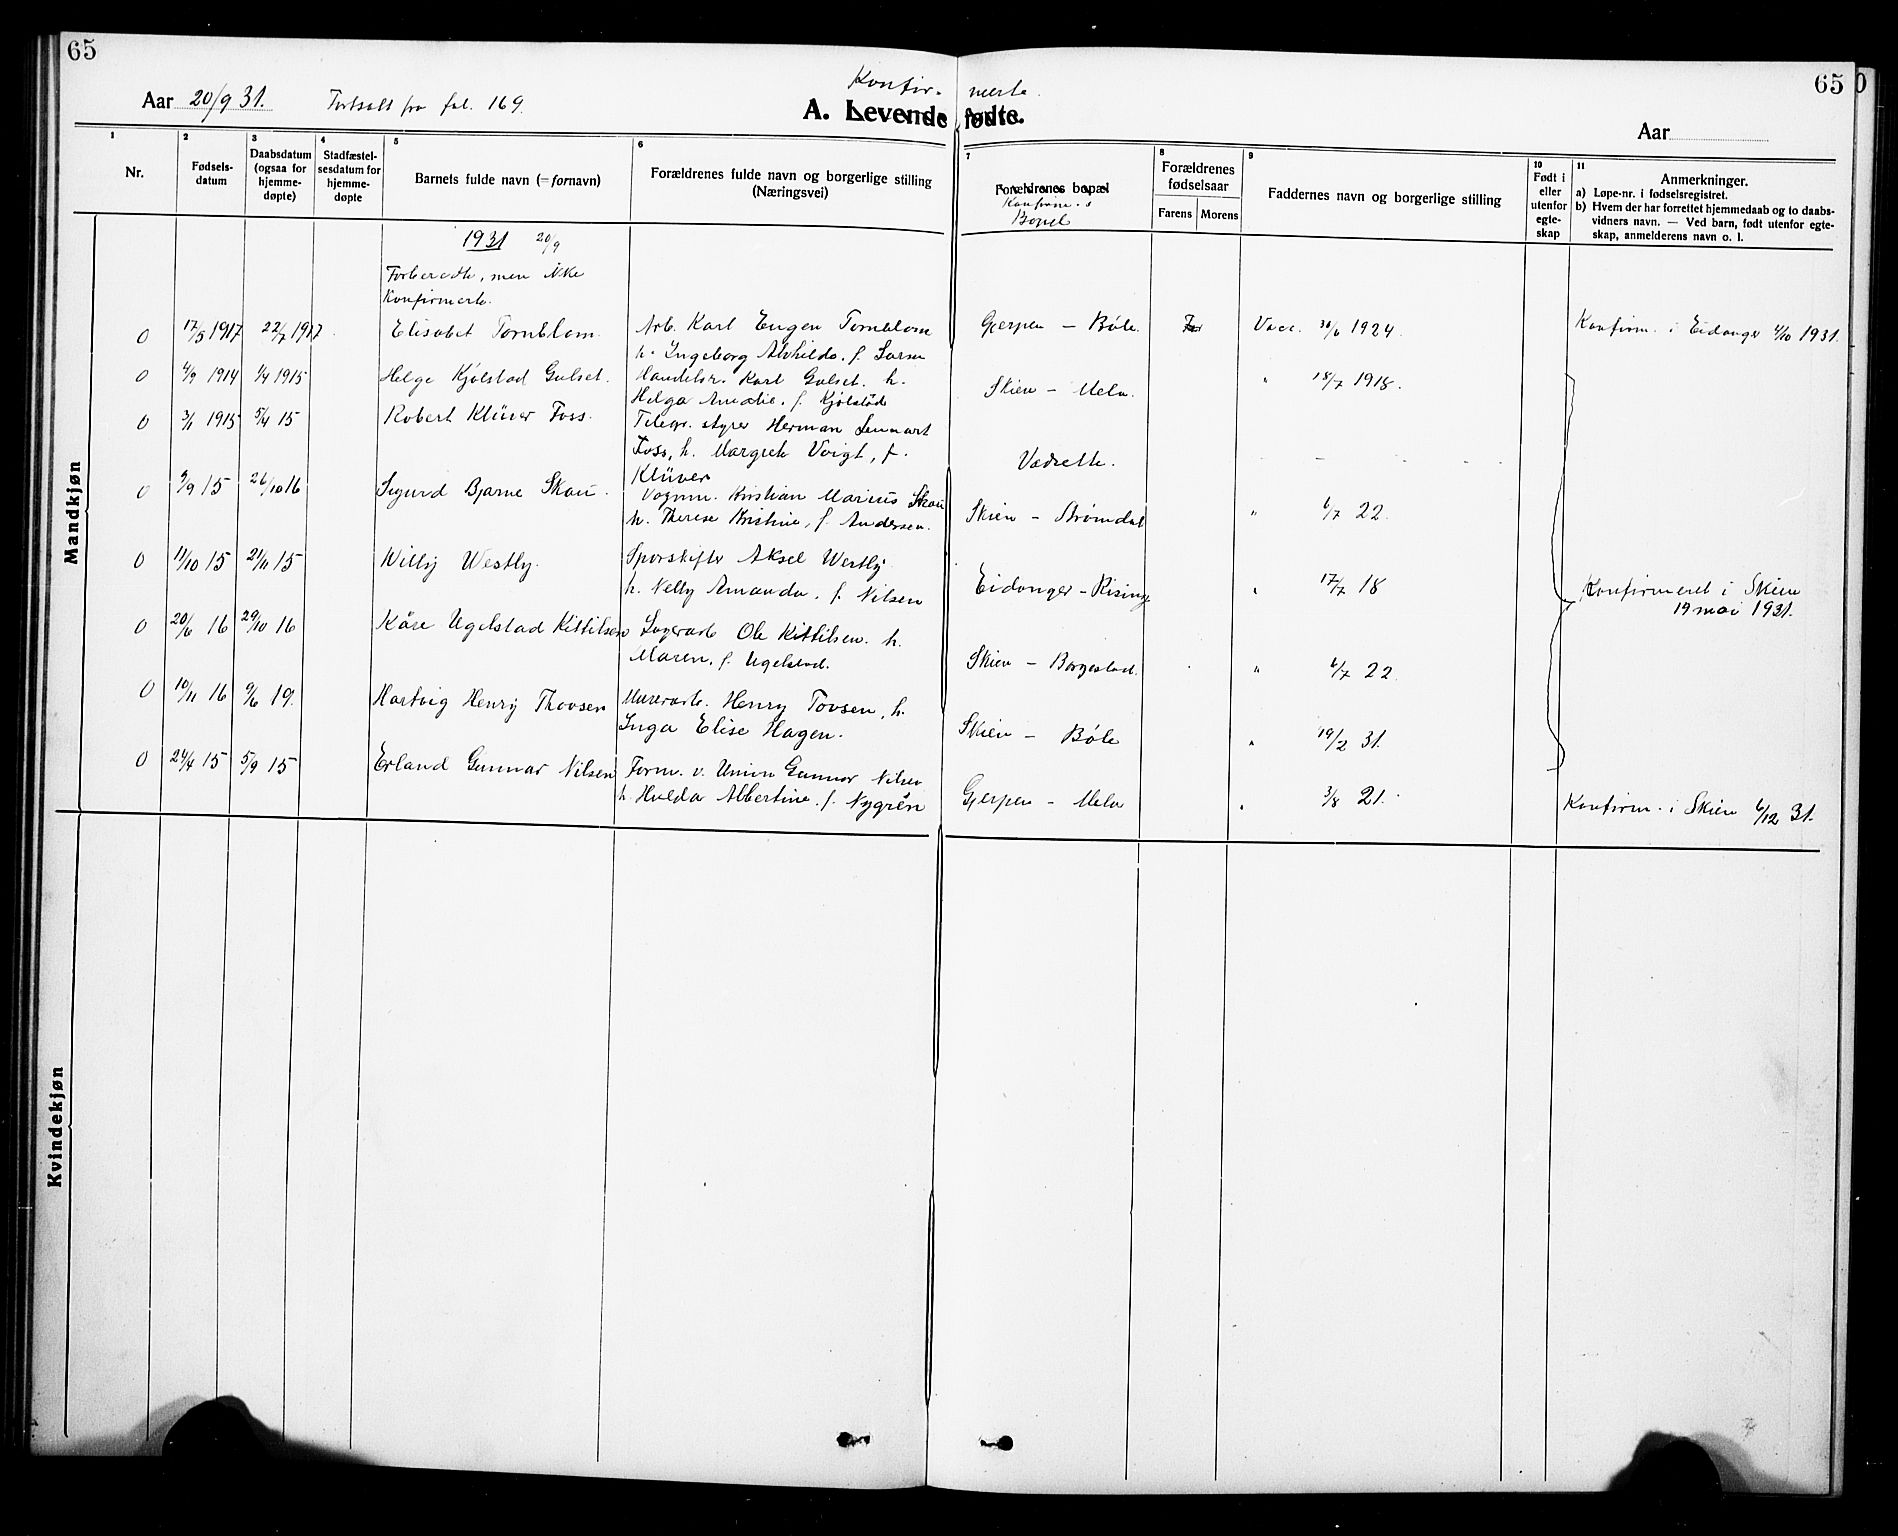 65
65
Aar 20/9 31. Fortsatt fra fol. 169.
Konfir- merte.
A. Levende fødte.
Aar
1
Nr.
2
Fødsels-
datum
3
Daabsdatum
(ogsaa for
hjemme-
døpte)
4
Stadfæstel-
sesdatum for
hjemme-
døpte
5
Barnets fulde navn (= fornavn)
6
Forældrenes fulde navn og borgerlige stilling
(Næringsvei)
7
Forældrenes bopæl
Konfirm.s
Bopel
8
Forældrenes
fødselsaar
Farens Morens
9
Faddernes navn og borgerlige stilling
10
Født i
eller
utenfor
egte-
skap
11
Anmerkninger.
a) Løpe-nr. i fødselsregistret.
b) Hvem der har forrettet hjemmedaab og to daabs-
vidners navn. — Ved barn, født utenfor egte-
skap, anmelderens navn o. l.
Mandkjøn
1931 20/9
Forberedte, men ikke
Konfirmerte.
0 17/5 1917 22/7 1917 Elisabet Tornblom. Arb. Karl Eugen Tornblom
h. Ingeborg Alvhilda. f. Larsen
Gjerpen — Bøle. Vacc. 30/6 1924. Konfirm. i Eidanger 4/10 1931.
0 4/9 1914 1/4 1915 Helge Kjølstad Gulset. Handelsr. Karl Gulset. h.
Helga Amalie. f. Kjølstad
Skien — Melv. " 18/7 1918.
0 3/1 1915 5/4 15 Robert Klüver Foss. Telegr. styrer Herman Lennart
Foss, h. Margrete Voigt, f.
Klüver
Vadrette. — — — —
0 9/9 15 26/10 16 Sigurd Bjarne Skau. Vognm. Kristian Marius Skau
h. Therese Kristine, f. Andersen.
Skien — Strømdal " 6/7 22.
0 11/10 15 21/11 15 Willy Westly. Sporskifter Aksel Westly
h. Nelly Amanda. f. Nilsen
Eidanger - Rising " 17/7 18 Konfirmeret i Skien
19 mai 1931.
0 20/6 16 29/10 16 Kåre Ugelstad Kittilsen Lagerarb Ole Kittilsen. h.
Maren. f. Ugelstad.
Skien — Borgestad. " 6/7 22.
0 10/11 16 9/6 19. Hartvig Henry Thovsen Murerarb. Henry Tovsen, h.
Inga Elise Hagen.
Skien — Bøle " 19/2 31.
0 24/4 15 5/9 15 Erland Gunnar Nilsen Form. v. Union Gunnar Nilsen
h. Hulda Albertine. f. Nygrén
Gjerpen — Melv " 3/8 21. Konfirm. i Skien 6/12 31.
Kvindekjøn